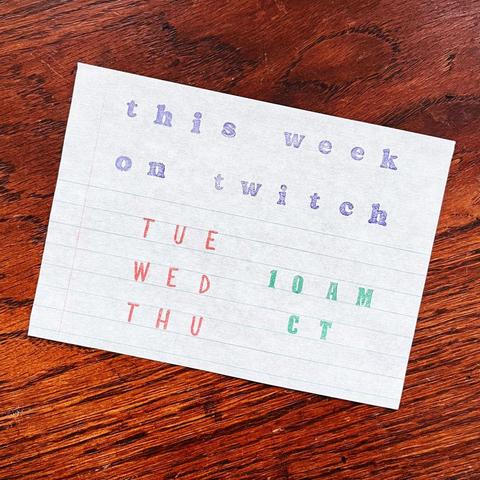 this week
on twitch
TUE
WED 10 AM
THU CT